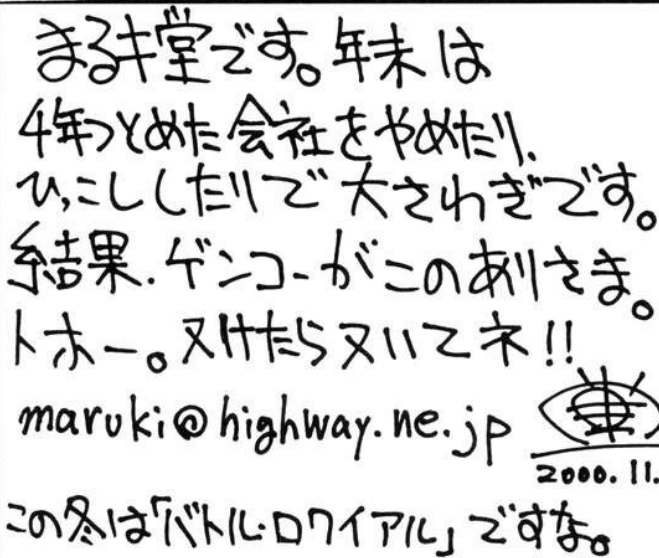 まるキ堂です。年末は
4年つとめた会社をやめたり、
ひっこししたりで大さわぎです。
結果.ゲンコーがこのありさま。
トホー。ヌけたらヌいてネ!!
maruki@highway.ne.jp
2000.11.
この冬は「バトル・ロワイアル」ですな。